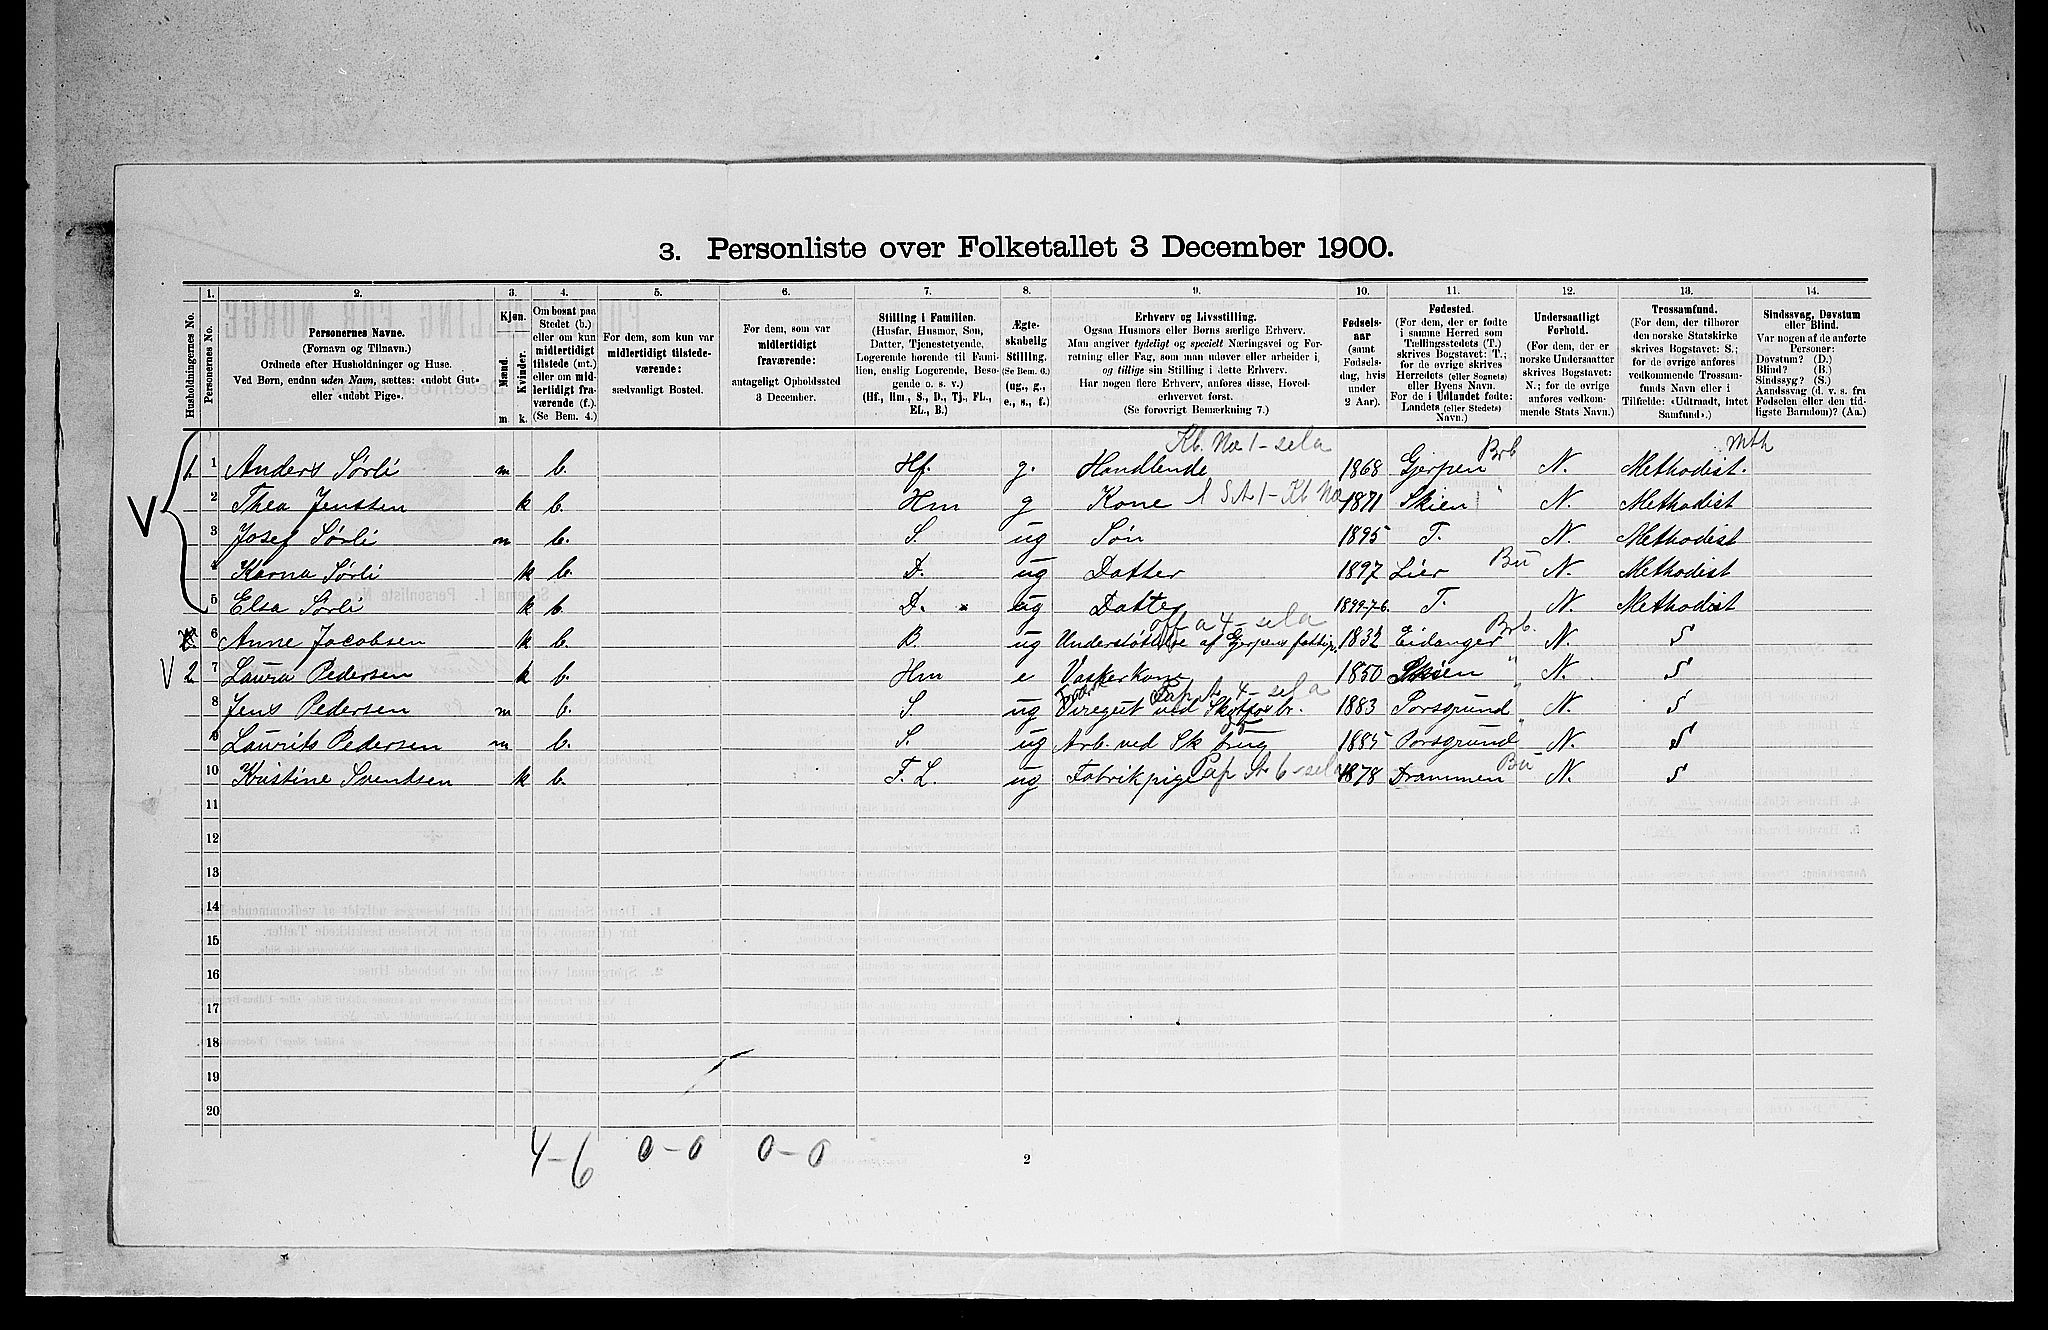 3. Personliste over Folketallet 3 December 1900.
Husholdningernes No.
1. Personernes No.
2. Personernes Navne.
(Fornavn og Tilnavn.)
Ordnede efter Husholdninger og Huse.
Ved Børn, endnu uden Navn, sættes: «udøbt Gut»
eller «udøbt Pige».
3. Kjøn.
Mænd. Kvinder.
m. k.
4. Om bosat paa
Stedet (b.)
eller om kun
midlertidigt
tilstede (mt.)
eller om mid-
lertidigt fra-
værende (f.).
(Se Bem. 4.)
5. For dem, som kun var
midlertidigt tilstede-
værende:
sædvanligt Bosted.
6. For dem, som var
midlertidigt
fraværende:
antageligt Opholdssted
3 December.
7. Stilling i Familien.
(Husfar, Husmor, Søn,
Datter, Tjenestetyende,
Logerende hørende til Fami-
lien, enslig Logerende, Besø-
gende o. s. v.)
(Hf., Hm., S., D., Tj., FL.,
EL., B.)
8. Ægte-
skabelig
Stilling.
(Se Bem. 6.)
(ug., g.,
e., s., f.)
9. Erhverv og Livsstilling.
Ogsaa Husmors eller Børns særlige Erhverv.
Man angiver tydeligt og specielt Næringsvei og For-
retning eller Fag, som man udøver eller arbeider i,
og tillige sin Stilling i dette Erhverv.
Har nogen flere Erhverv, anføres disse, Hoved-
erhvervet først.
(Se forøvrigt Bemerkning 7.)
10. Fødsels-
aar
(samt
Fødsels-
dag, hvis
under
2 Aar).
11. Fødested.
(For dem, der er fødte
i samme Herred som
Tællingsstedets (T.)
skrives Bogstavet: T.;
for de øvrige skrives
Herredets (eller Sognets)
eller Byens Navn.
For de i Udlandet fødte:
Landets (eller Stedets)
Navn.)
12. Undersaatligt
Forhold.
(For dem, der er
norske Undersaatter
skrives Bogstavet:
N.; for de øvrige
anføres vedkom-
mende Stats Navn.)
13. Trossamfund.
(For dem, der tilhører
den norske Statskirke
skrives Bogstavet: S.;
for de øvrige anføres
vedkommende Trossam-
funds Navn eller i
Tilfælde: «Udtraadt, intet
Samfund».)
14. Sindssvag, Døvstum
eller Blind.
Var nogen af de anførte
Personer:
Døvstum? (D.)
Blind? (B.)
Sindssyg? (S.)
Aandssvag (d. v. s. fra
Fødselen eller den tid-
ligste Barndom)? (Aa.)
Kb. No 1 – sela Brb mth
1. 1 Anders Sørli m b. Hf. g. Handlende 1868 Gjerpen N. Methodist.
V 2 Thea Jenssen k b. Hm g Kone 1871 Skien " N. Methodist
3 Josef Sørli m b. S. ug Søn 1895 T. N. Methodist
4 Karna Sørli k b. D. ug Datter 1897 Lier Bu N. Methodist
5 Elsa Sørli k b. D. ug Datter 1899-7-6. T. N. Methodist
off a 4 – sela Brb.
6 Anne Jacobsen k b. B. ug Understøttelse af Gjerpens fattigv. 1832 Eidanger N. S
V 2 7 Laura Pedersen k b. Hm e Vaskerkone 1850 Skien " N. S
Pap A 4 – sela
8 Jens Pedersen m b. S. ug Viregut ved Skotfos br. 1883 Porsgrund " N. S
9 Laurits Pedersen m b. S. ug Arb. ved Sk brug 1885 Porsgrund " N. S
10 Kristine Svendsen k b. F. L. ug Fabrikpige Pap A 6 – sela 1878 Drammen Bu N. S
11
12
13
14
15
16
17
18
19
20
4 – 6 0 – 0 0 – 0
2